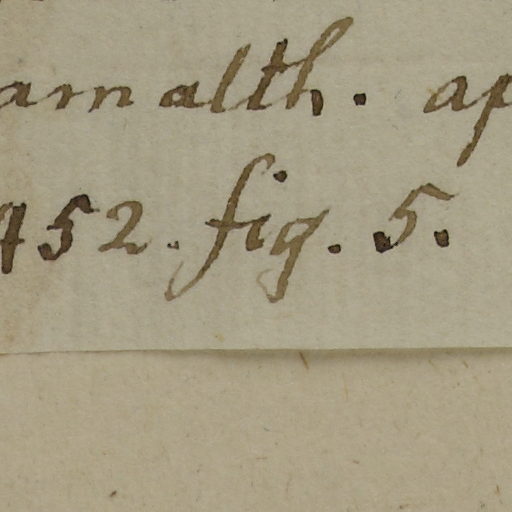 amalth. ap
452. fig. 5.